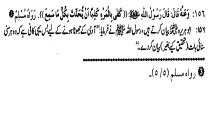 ١٥٦: وَعَنْهُ قَالَ: قَالَ رَسُولُ اللهِ ﷺ: ((كَفٰى بِالْمَرْءِ كَذِبًا أَنْ يُحَدِّثَ بِكُلِّ مَا سَمِعَ)). رَوَاهُ مُسْلِمٌ.
١٥٦: ابو ہریرہ بیان کرتے ہیں، رسول اللہ ﷺ نے فرمایا: "آدمی کے جھوٹا ہونے کے لیے یہی کافی ہے کہ وہ ہر سنی
سنائی بات (تحقیق کیے بغیر) بیان کر دے۔"
رواه مسلم (٥/٥).